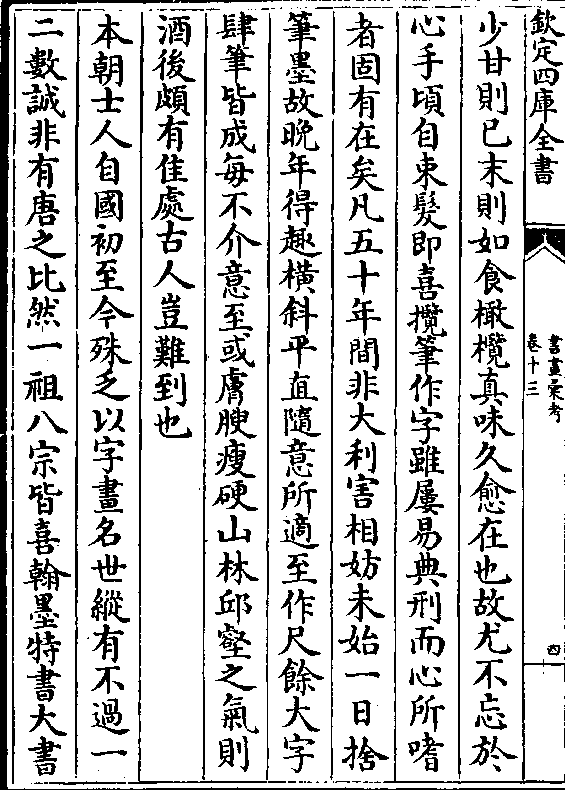 欽定四庫全書
書畫彙考
卷十三
四
少甘則已末則如食橄欖真味久愈在也故尤不忘於
心手頃自束髮即喜攬筆作字雖屢易典刑而心所嗜
者固有在矣凡五十年間非大利害相妨未始一日捨
筆墨故晚年得趣橫斜平直隨意所適至作尺餘大字
肆筆皆成每不介意至或膚腴瘦硬山林邱壑之氣則
酒後頗有佳處古人豈難到也
本朝士人自國初至今殊乏以字畫名世縱有不過一
二數誠非有唐之比然一祖八宗皆喜翰墨特書大書